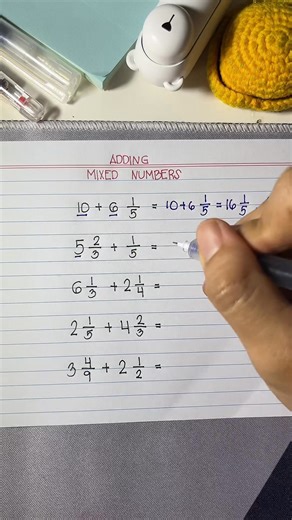 ADDING
MIXED NUMBERS
10 + 6 1/5 = 10 + 6 1/5 = 16 1/5
5 2/3 + 1/5 =
6 1/3 + 2 1/4 =
2 1/5 + 4 2/3 =
3 4/9 + 2 1/2 =